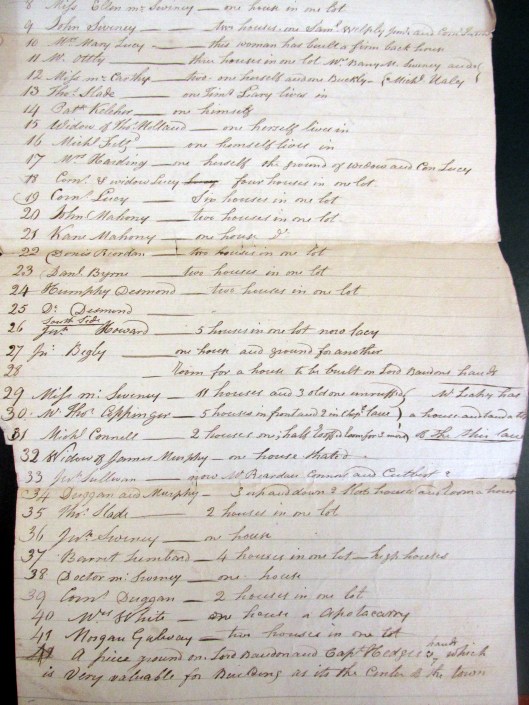 8 Miss Ellen Mc Sweney — one house in one lot
9 John Sweney — two houses one Saml Welply and Corns
10 Mrs Mary Lucy — this woman has built a firm back house
11 M. Ottly — three houses in one lot Mr Barry M. Sweney and
12 Miss Mc Carthy — two one herself and one Buckly — Michl Haly
13 Thos Slade — one Timy Leary lives in
14 Patk Kelcher — one himself
15 Widow of Thos Holland — one herself lives in
16 Michl Fitzd — one himself lives in
17 Mrs Harding — one herself the ground of widow and Con Lucy
18 Corns & widow Lucy four houses in one lot
19 Corns Lucy — Six houses in one lot
20 John Mahony — two houses in one lot
21 Kane Mahony — one house Do
22 Denis Reardan — two houses in one lot
23 Danl Byrne — two houses in one lot
24 Humphy Desmond — two houses in one lot
25 Dr Desmond —
South Side
26 Jno Howard — 5 houses in one lot now lacy
27 Jno Bigly — one house and ground for another
28 Room for a house to be built on Lord Bandons hands
29 Miss Mc Sweney — 11 houses and 3 old one Mr Leahy has
30 Mr Thos Eppinger — 5 houses in front and 2 in lane a house and
31 Michl Connell — 2 houses one half lofts & room for 3 the lane
32 Widow of James Murphy — one house thatd
33 Jno Sullivan — now Mr Reardan Connor and Cuthbert 2
34 Duggan and Murphy — 3 up and down 2 slob house and room a house
35 Thos Slade 2 houses in one lot
36 Jno Sweney — one house
37 Barret Lumbard — 4 houses in one lot — high houses
38 Doctor Mc Sweney — one house
39 Corns Duggan — 2 houses in one lot
40 Mrs White — one house a Apotacarry
41 Morgan Galway — two houses in one lot
42 A piece ground on Lord Bandon and Capt Hedges hands which
is Very valuable for Building as its the Center of the town